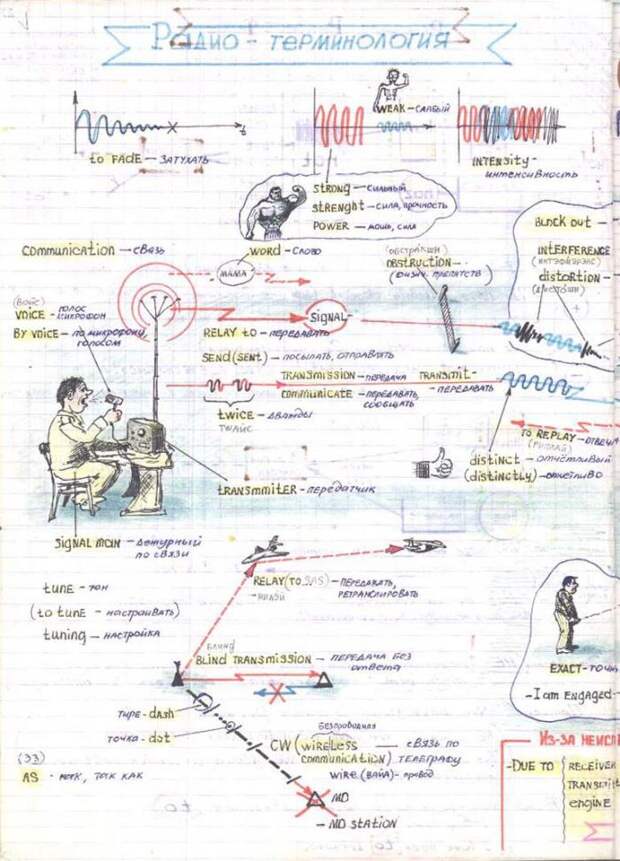 Радио - терминология
WEAK - слабый
t
to FADE - ЗАТУХАТЬ
INTENSITY -
интенсивность
STRONG - СИЛЬНЫЙ
STRENGHT - СИЛА, ПРОЧНОСТЬ
POWER - мощь, сила
BLOCK OUT -
INTERFERENCE
(ИНТЭФИЭРЭНС)
distortion -
COMMUNICATION - СВЯЗЬ
WORD - СЛОВО
МАМА
OBSTRUCTION -
(физич. препятств)
(ВОЙС)
VOICE - ГОЛОС
МИКРОФОН
BY VOICE - ПО МИКРОФОНУ,
ГОЛОСОМ
SIGNAL -
RELAY to - ПЕРЕДАВАТЬ
SEND (SENT) - ПОСЫЛАТЬ, ОТПРАВЛЯТЬ
TRANSMISSION - ПЕРЕДАЧА
TRANSMIT -
- ПЕРЕДАВАТЬ
COMMUNICATE - ПЕРЕДАВАТЬ,
СООБЩАТЬ
twice - ДВАЖДЫ
ТУАЙС
TO REPLAY - ОТВЕЧА
(РИПЛАЙ)
distinct - ОТЧЁТЛИВЫЙ
(distinctly) - ОТЧЁТЛИВО
tRANSMMITER - ПЕРЕДАТЧИК
SIGNAL MAN - ДЕЖУРНЫЙ
ПО СВЯЗИ
tune - ТОН
(to tune - НАСТРАИВАТЬ)
tuning - НАСТРОЙКА
RELAY (TO, SAS) - ПЕРЕДАВАТЬ,
РЕТРАНСЛИРОВАТЬ
- РИЛЭЙ
БЛАИНД
BLIND TRANSMISSION - ПЕРЕДАЧА БЕЗ
ОТВЕТА
EXACT - ТОЧН
- I am ENGAGED -
ТИРЕ - DASH
ТОЧКА - dot
БЕЗПРОВОДНАЯ
CW (WIRELESS
COMMUNICATION) - СВЯЗЬ ПО
ТЕЛЕГРАФУ
WIRE (ВАЙА) - ПРОВОД
(ЭЗ)
AS - КАК, ТАК КАК
MD
- MD STATION
ИЗ-ЗА НЕИСП
- DUE TO
RECEIVER
TRANSMIT
engine